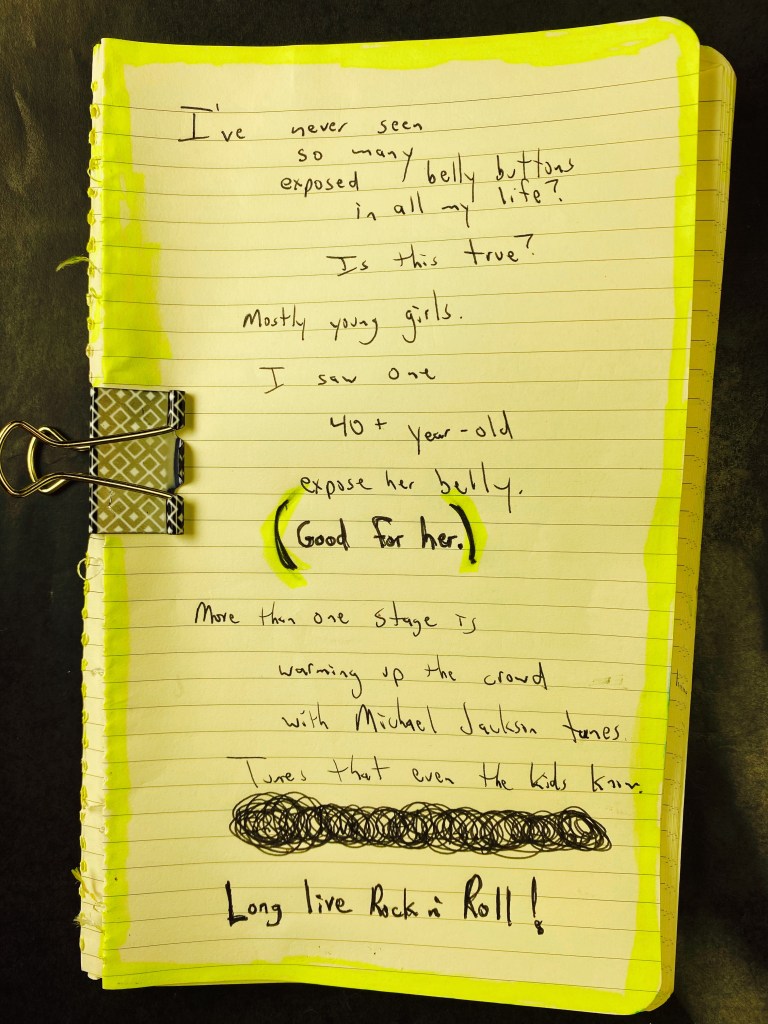 I've never seen
so many
exposed belly buttons
in all my life?
Is this true?
Mostly young girls.
I saw one
40+ year-old
expose her belly.
(Good for her.)
More than one stage is
warming up the crowd
with Michael Jackson tunes
Tunes that even the kids know.
Long live Rock n' Roll!